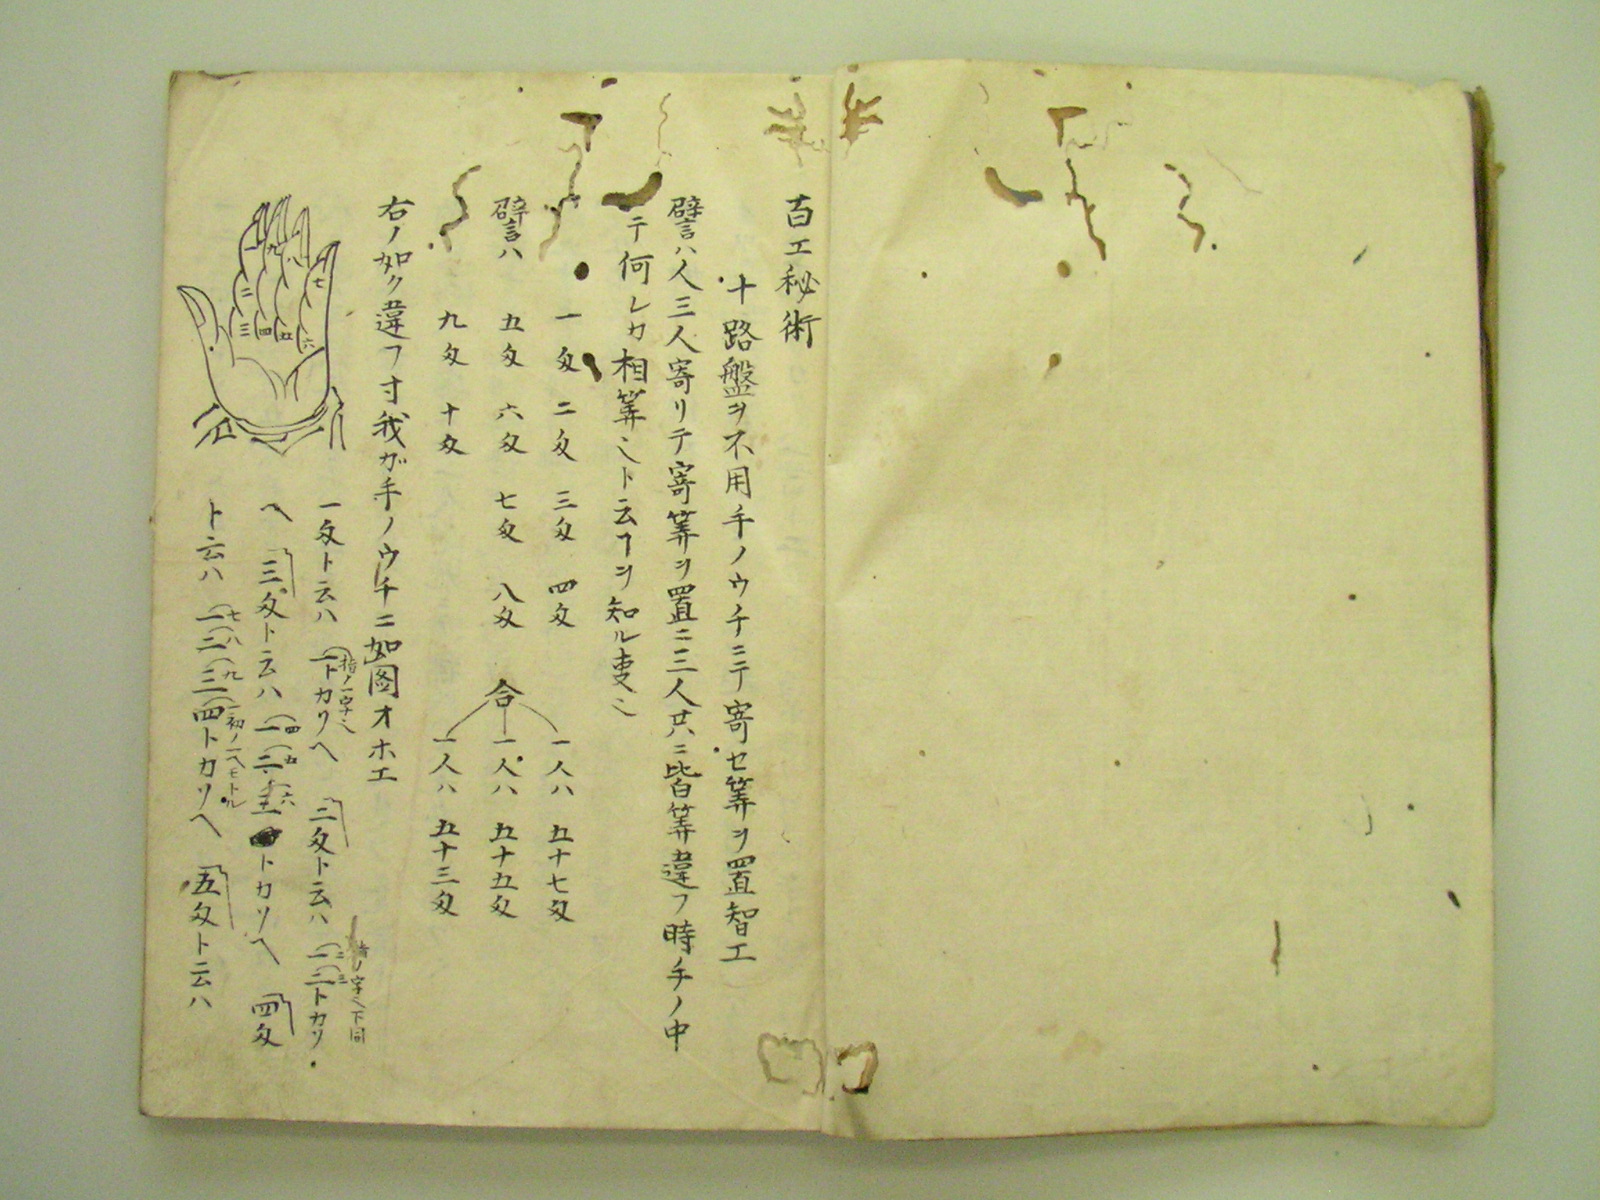 百工秘術
十路盤ヲ不用手ノウチニテ寄セ筭ヲ置智工
譬ハ人三人寄リテ寄筭ヲ置ニ三人共ニ皆筭違フ時手ノ中
ニテ何レカ相筭ミト云フヲ知ル叓ミ
一匁 二匁 三匁 四匁
譬ハ 五匁 六匁 七匁 八匁
九匁 十匁
合
一人ハ 五十七匁
一人ハ 五十五匁
一人ハ 五十三匁
右ノ如ク違フ寸我ガ手ノウチニ如図オホエ
二
三
四
五
六
七
八
九
一匁ト云ハ 一トカリヘ 二匁ト云ハ 一二トカリ
指ノ一字ミ
二三
指ノ字ミ下同
ヘ 三匁ト云ハ 一二三トカリヘ 四匁
四五六
ト云ハ 一二三四トカリヘ 五匁ト云ハ
七八九
初ノ一ヘモトル